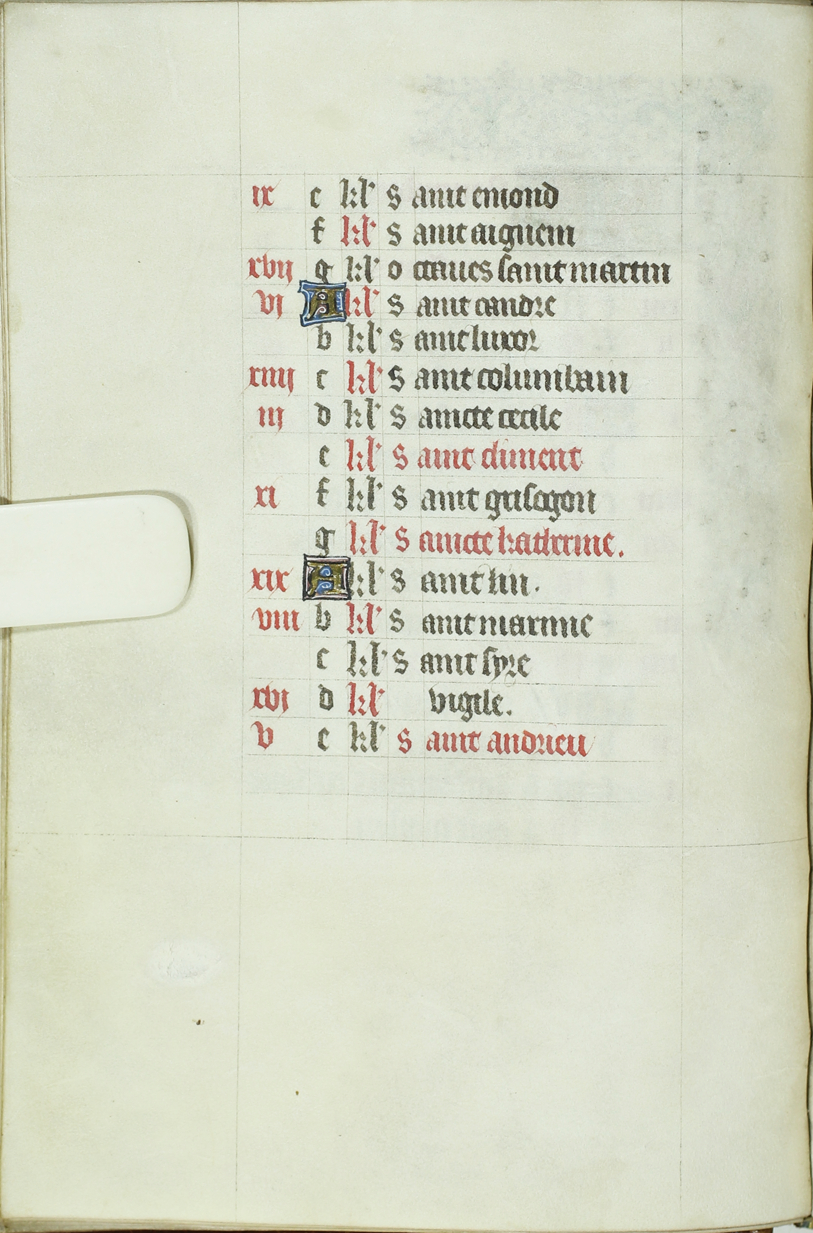 ix e kl' S aint emond
f kl' S aint aignem
xvij g kl' O ctaues saint martin
vj A kl' S aint candre
b kl' S aint luxor
xiiij c kl' S aint columbain
iij d kl' S aincte cecile
e kl' S aint climent
xi f kl' S aint grisogon
g kl' S aincte katherine.
xix A kl' S aint lin.
viii b kl' S aint marinne
c kl' S aint syre
xvj d kl' vigile.
v e kl' S aint andrieu